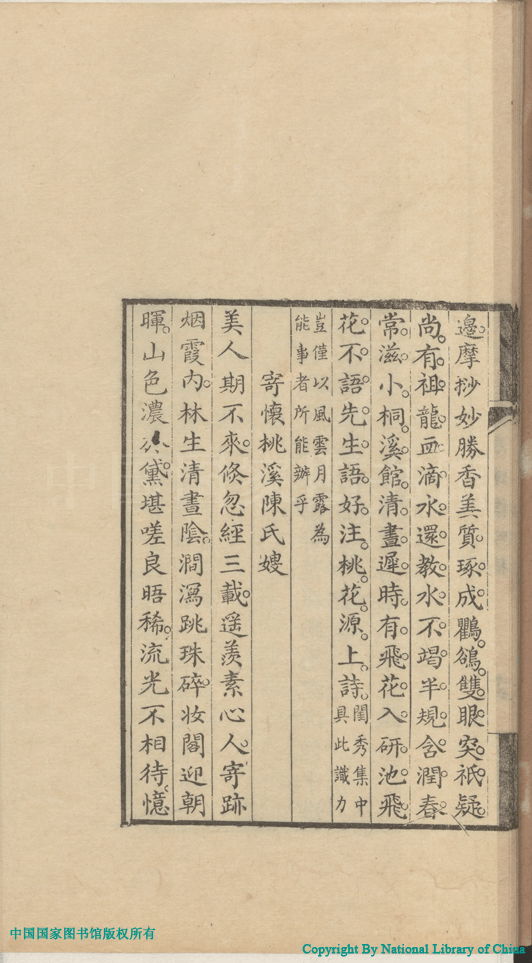 邊摩挲妙勝香姜質琢成鸜鵒雙眼突祇疑
尚有祖龍血滴水還教水不竭半規含潤春
常滋小桐溪館清晝遲時有飛花入研池飛
花不語先生語好注桃花源上詩閨秀集中具此識力
豈僅以風雲月露為能事者所能辦乎
寄懷桃溪陳氏嫂
美人期不來倏忽經三載遥羨素心人寄跡
烟霞內林生清晝陰澗瀉跳珠碎妝閣迎朝
暉山色濃於黛堪嗟良晤稀流光不相待憶
中国国家图书馆版权所有
Copyright By National Library of China